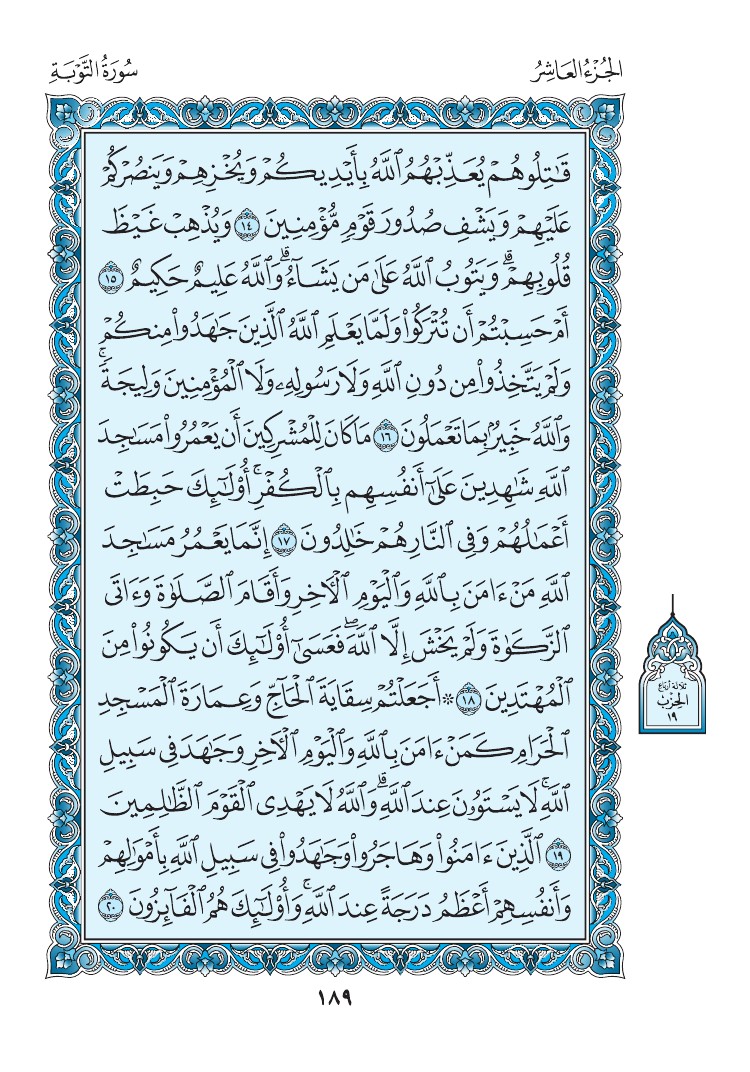 الجُزْءُ العَاشِرُ
سُورَةُ التَّوْبَةِ
قَٰتِلُوهُمْ يُعَذِّبْهُمُ ٱللَّهُ بِأَيْدِيكُمْ وَيُخْزِهِمْ وَيَنصُرْكُمْ
عَلَيْهِمْ وَيَشْفِ صُدُورَ قَوْمٍ مُّؤْمِنِينَ ١٤ وَيُذْهِبْ غَيْظَ
قُلُوبِهِمْ ۗ وَيَتُوبُ ٱللَّهُ عَلَىٰ مَن يَشَآءُ ۗ وَٱللَّهُ عَلِيمٌ حَكِيمٌ ١٥
أَمْ حَسِبْتُمْ أَن تُتْرَكُوا۟ وَلَمَّا يَعْلَمِ ٱللَّهُ ٱلَّذِينَ جَٰهَدُوا۟ مِنكُمْ
وَلَمْ يَتَّخِذُوا۟ مِن دُونِ ٱللَّهِ وَلَا رَسُولِهِۦ وَلَا ٱلْمُؤْمِنِينَ وَلِيجَةً ۚ
وَٱللَّهُ خَبِيرٌۢ بِمَا تَعْمَلُونَ ١٦ مَا كَانَ لِلْمُشْرِكِينَ أَن يَعْمُرُوا۟ مَسَٰجِدَ
ٱللَّهِ شَٰهِدِينَ عَلَىٰٓ أَنفُسِهِم بِٱلْكُفْرِ ۚ أُو۟لَٰٓئِكَ حَبِطَتْ
أَعْمَٰلُهُمْ وَفِى ٱلنَّارِ هُمْ خَٰلِدُونَ ١٧ إِنَّمَا يَعْمُرُ مَسَٰجِدَ
ٱللَّهِ مَنْ ءَامَنَ بِٱللَّهِ وَٱلْيَوْمِ ٱلْءَاخِرِ وَأَقَامَ ٱلصَّلَوٰةَ وَءَاتَى
ٱلزَّكَوٰةَ وَلَمْ يَخْشَ إِلَّا ٱللَّهَ ۖ فَعَسَىٰٓ أُو۟لَٰٓئِكَ أَن يَكُونُوا۟ مِنَ
ٱلْمُهْتَدِينَ ١٨ ۞ أَجَعَلْتُمْ سِقَايَةَ ٱلْحَآجِّ وَعِمَارَةَ ٱلْمَسْجِدِ
ٱلْحَرَامِ كَمَنْ ءَامَنَ بِٱللَّهِ وَٱلْيَوْمِ ٱلْءَاخِرِ وَجَٰهَدَ فِى سَبِيلِ
ٱللَّهِ ۚ لَا يَسْتَوُۥنَ عِندَ ٱللَّهِ ۗ وَٱللَّهُ لَا يَهْدِى ٱلْقَوْمَ ٱلظَّٰلِمِينَ
١٩ ٱلَّذِينَ ءَامَنُوا۟ وَهَاجَرُوا۟ وَجَٰهَدُوا۟ فِى سَبِيلِ ٱللَّهِ بِأَمْوَٰلِهِمْ
وَأَنفُسِهِمْ أَعْظَمُ دَرَجَةً عِندَ ٱللَّهِ ۚ وَأُو۟لَٰٓئِكَ هُمُ ٱلْفَآئِزُونَ ٢٠
ثلاثة أرباع
الحِزْبِ
١٩
١٨٩